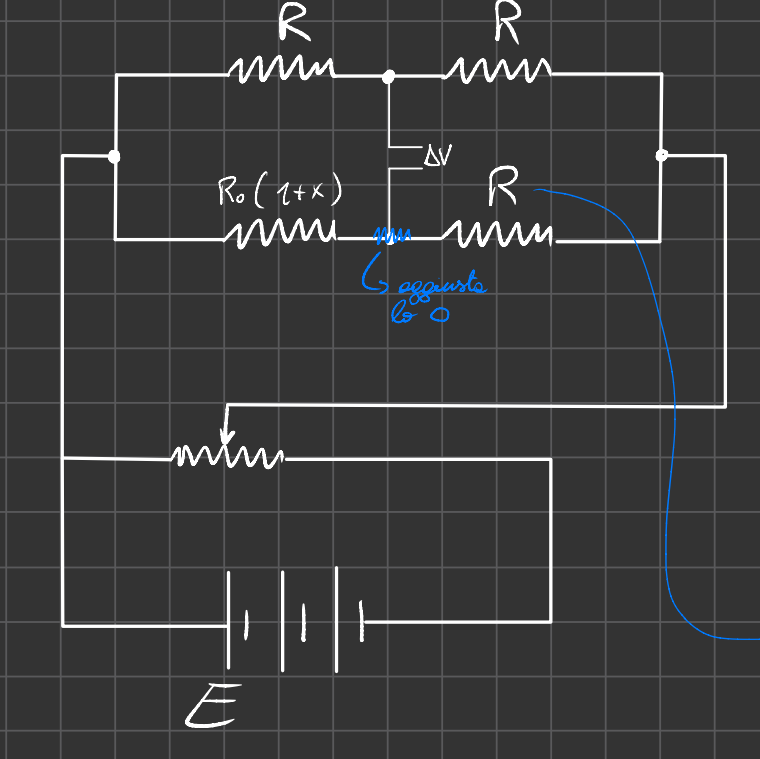 R R
ΔV
R₀(1+x) R
aggiusta
lo 0
E